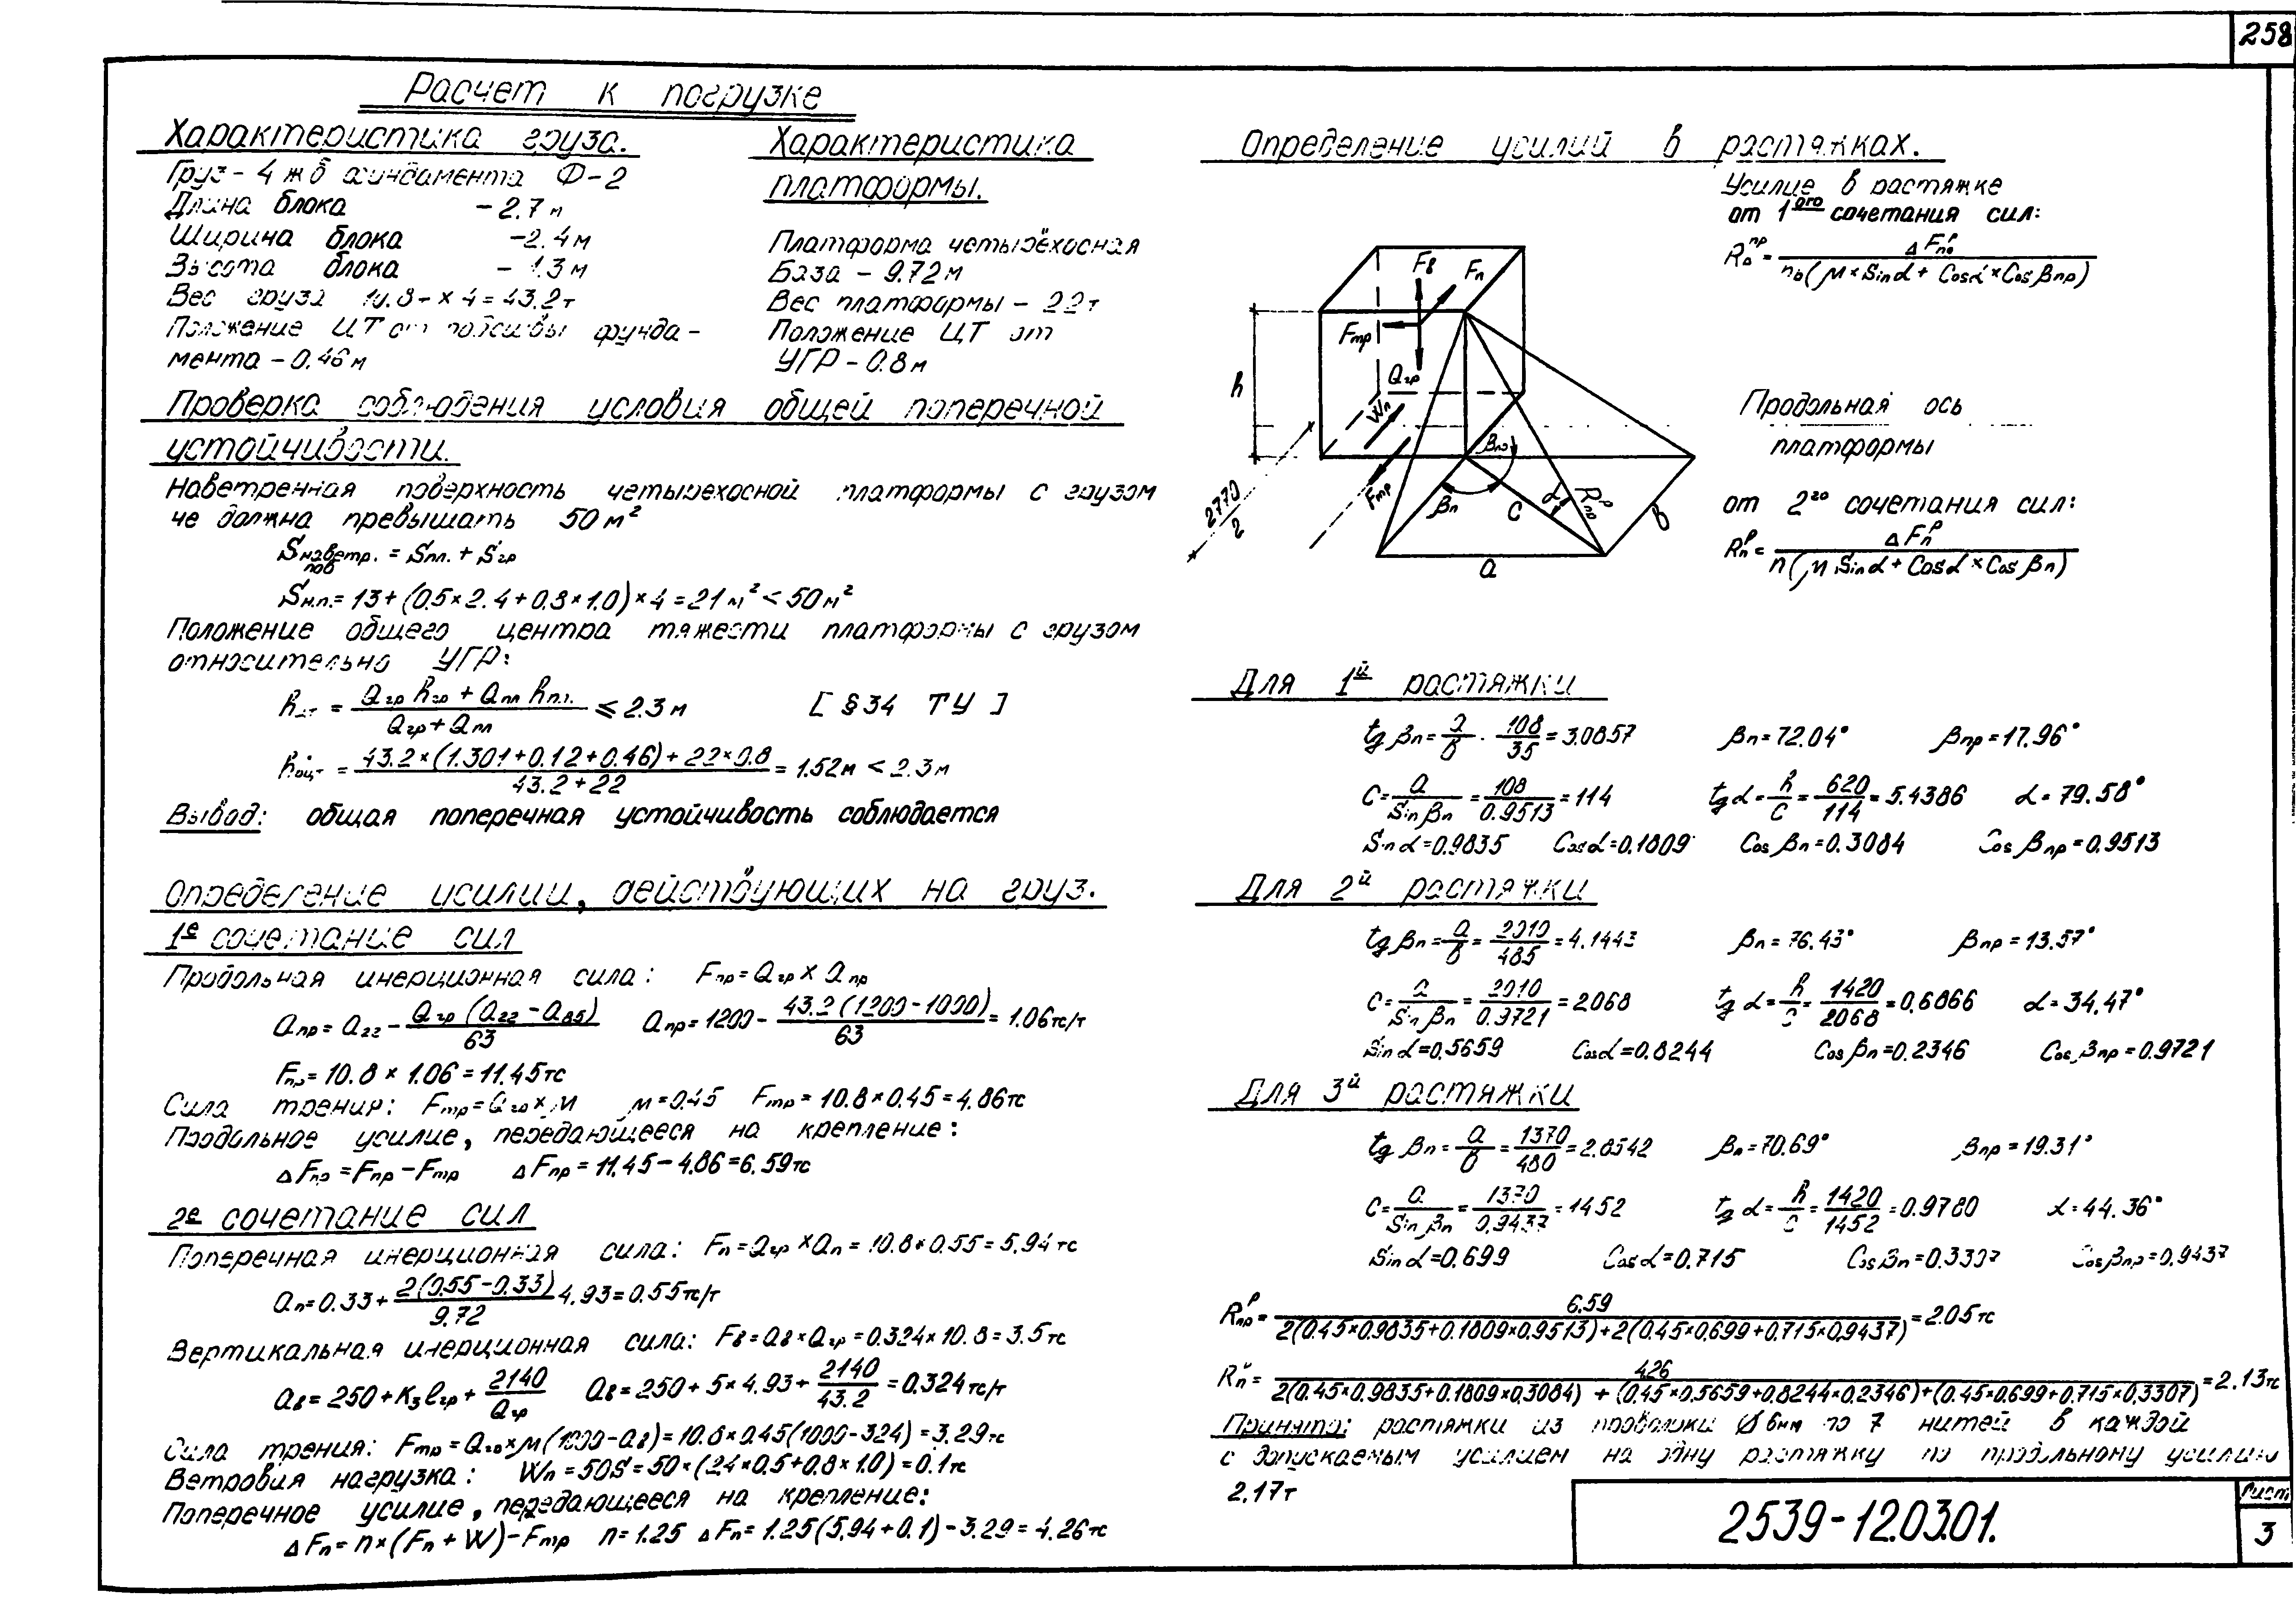 258
Расчет к погрузке
Характеристика груза.
Груз - 4 ж б фундамента Ф-2
Длина блока - 2.7 м
Ширина блока - 2.4 м
Высота блока - 1.3 м
Вес груза 10.8т × 4 = 43.2т
Положение ЦТ от подошвы фунда-
мента - 0.46 м
Характеристика
платформы.
Платформа четырёхосная
База - 9.72 м
Вес платформы - 22т
Положение ЦТ от
УГР - 0.8 м
Проверка соблюдения условия общей поперечной
устойчивости.
Наветренная поверхность четырехосной платформы с грузом
не должна превышать 50 м²
Sнаветр. пов = Sпл. + Sгр
Sн.п. = 13 + (0.5×2.4+0.8×1.0)×4 = 21 м² < 50 м²
Положение общего центра тяжести платформы с грузом
относительно УГР:
hцт = (Qгр hгр + Qпл hпл.) / (Qгр + Qпл) ≤ 2.3 м [ §34 ТУ ]
hоцт = (43.2×(1.301+0.12+0.46)+22×0.8) / (43.2+22) = 1.52м < 2.3 м
Вывод: общая поперечная устойчивость соблюдается
Определение усилий, действующих на груз.
1е сочетание сил
Продольная инерционная сила: Fпр = Qгр × aпр
aпр = a22 - Qгр (a22 - a85) / 63 aпр = 1200 - 43.2 (1200 - 1000) / 63 = 1.06 тс/т
Fпр = 10.8 × 1.06 = 11.45тс
Сила трения: Fтр = Qгр × м м = 0.45 Fтр = 10.8 × 0.45 = 4.86тс
Продольное усилие, передающееся на крепление:
ΔFпр = Fпр - Fтр ΔFпр = 11.45 - 4.86 = 6.59тс
2е сочетание сил
Поперечная инерционная сила: Fп = Qгр × aп = 10.8 × 0.55 = 5.94 тс
aп = 0.33 + 2(0.55 - 0.33) / 9.72 4.93 = 0.55тс/т
Вертикальная инерционная сила: Fв = aв × Qгр = 0.324 × 10.8 = 3.5 тс
aв = 250 + K3 lгр + 2140 / Qгр aв = 250 + 5 × 4.93 + 2140 / 43.2 = 0.324 тс/т
Сила трения: Fтр = Qгр × м (1000 - aв) = 10.8 × 0.45 (1000 - 324) = 3.29 тс
Ветровая нагрузка: Wп = 50S = 50 × (2.4 × 0.5 + 0.8 × 1.0) = 0.1 тс
Поперечное усилие, передающееся на крепление:
ΔFп = n × (Fп + W) - Fтр n = 1.25 ΔFп = 1.25 (5.94 + 0.1) - 3.29 = 4.26 тс
Определение усилий в растяжках.
Fв
Fп
Fтр
Qгр
h
Wп
Fтр
2770/2
βпр
βп
C
α
Rпр р
в
a
Усилие в растяжке
от 1ого сочетания сил:
Rр пр = ΔFпр р / nр(м × Sin α + Cos α × Cos βпр)
Продольная ось
платформы
от 2го сочетания сил:
Rп р = ΔFп р / n(м Sin α + Cos α × Cos βп)
Для 1й растяжки
tg βп = a/в · 108/35 = 3.0857 βп = 72.04° βпр = 17.96°
C = a / Sin βп = 108 / 0.9513 = 114 tg α = h/C = 620/114 = 5.4386 α = 79.58°
Sin α = 0.9835 Cos α = 0.1809 Cos βп = 0.3084 Cos βпр = 0.9513
Для 2й растяжки
tg βп = a/в = 2010/485 = 4.1443 βп = 76.43° βпр = 13.57°
C = a / Sin βп = 2010 / 0.9721 = 2068 tg α = h/C = 1420/2068 = 0.6866 α = 34.47°
Sin α = 0.5659 Cos α = 0.8244 Cos βп = 0.2346 Cos βпр = 0.9721
Для 3й растяжки
tg βп = a/в = 1370/480 = 2.8542 βп = 70.69° βпр = 19.31°
C = a / Sin βп = 1370 / 0.9437 = 1452 tg α = h/C = 1420/1452 = 0.9780 α = 44.36°
Sin α = 0.699 Cos α = 0.715 Cos βп = 0.3307 Cos βпр = 0.9437
Rпр р = 6.59 / 2(0.45×0.9835+0.1809×0.9513)+2(0.45×0.699+0.715×0.9437) = 2.05 тс
Rп = 4.26 / 2(0.45×0.9835+0.1809×0.3084) + (0.45×0.5659+0.8244×0.2346)+(0.45×0.699+0.715×0.3307) = 2.13 тс
Принято: растяжки из проволоки Ø 6мм по 7 нитей в каждой
с допускаемым усилием на одну растяжку по продольному усилию
2.17т
2539-12.03.01.
Лист
3